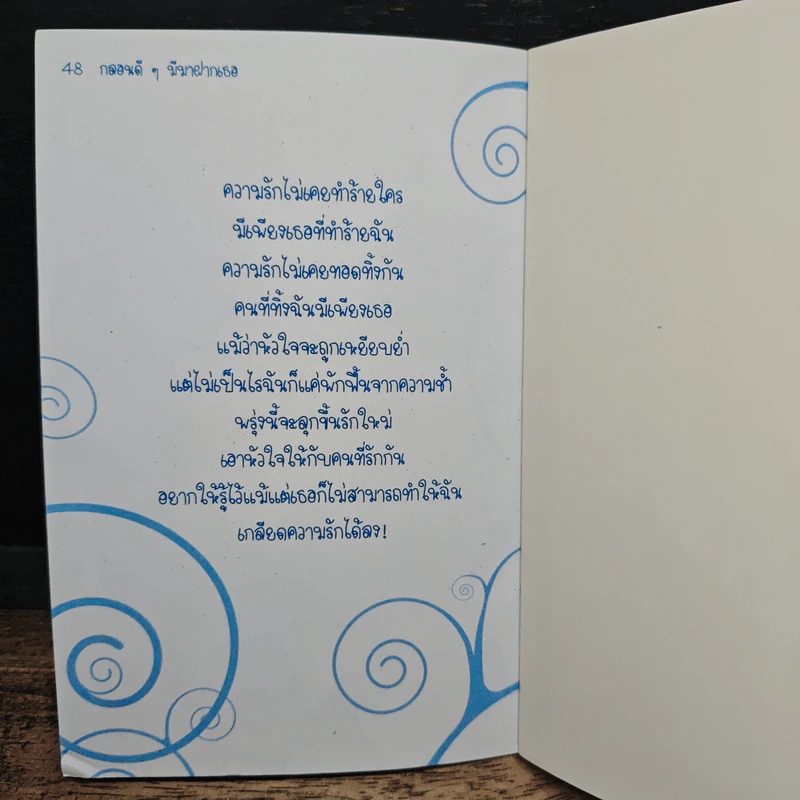 48 กลอนดี ๆ มีมาฝากเธอ
ความรักไม่เคยทำร้ายใคร
มีเพียงเธอที่ทำร้ายฉัน
ความรักไม่เคยทอดทิ้งกัน
คนที่ทิ้งฉันมีเพียงเธอ
แม้ว่าหัวใจจะถูกเหยียบย่ำ
แต่ไม่เป็นไรฉันก็แค่พักฟื้นจากความช้ำ
พรุ่งนี้จะลุกขึ้นรักใหม่
เอาหัวใจให้กับคนที่รักกัน
อยากให้รู้ไว้แม้แต่เธอก็ไม่สามารถทำให้ฉัน
เกลียดความรักได้ลง!